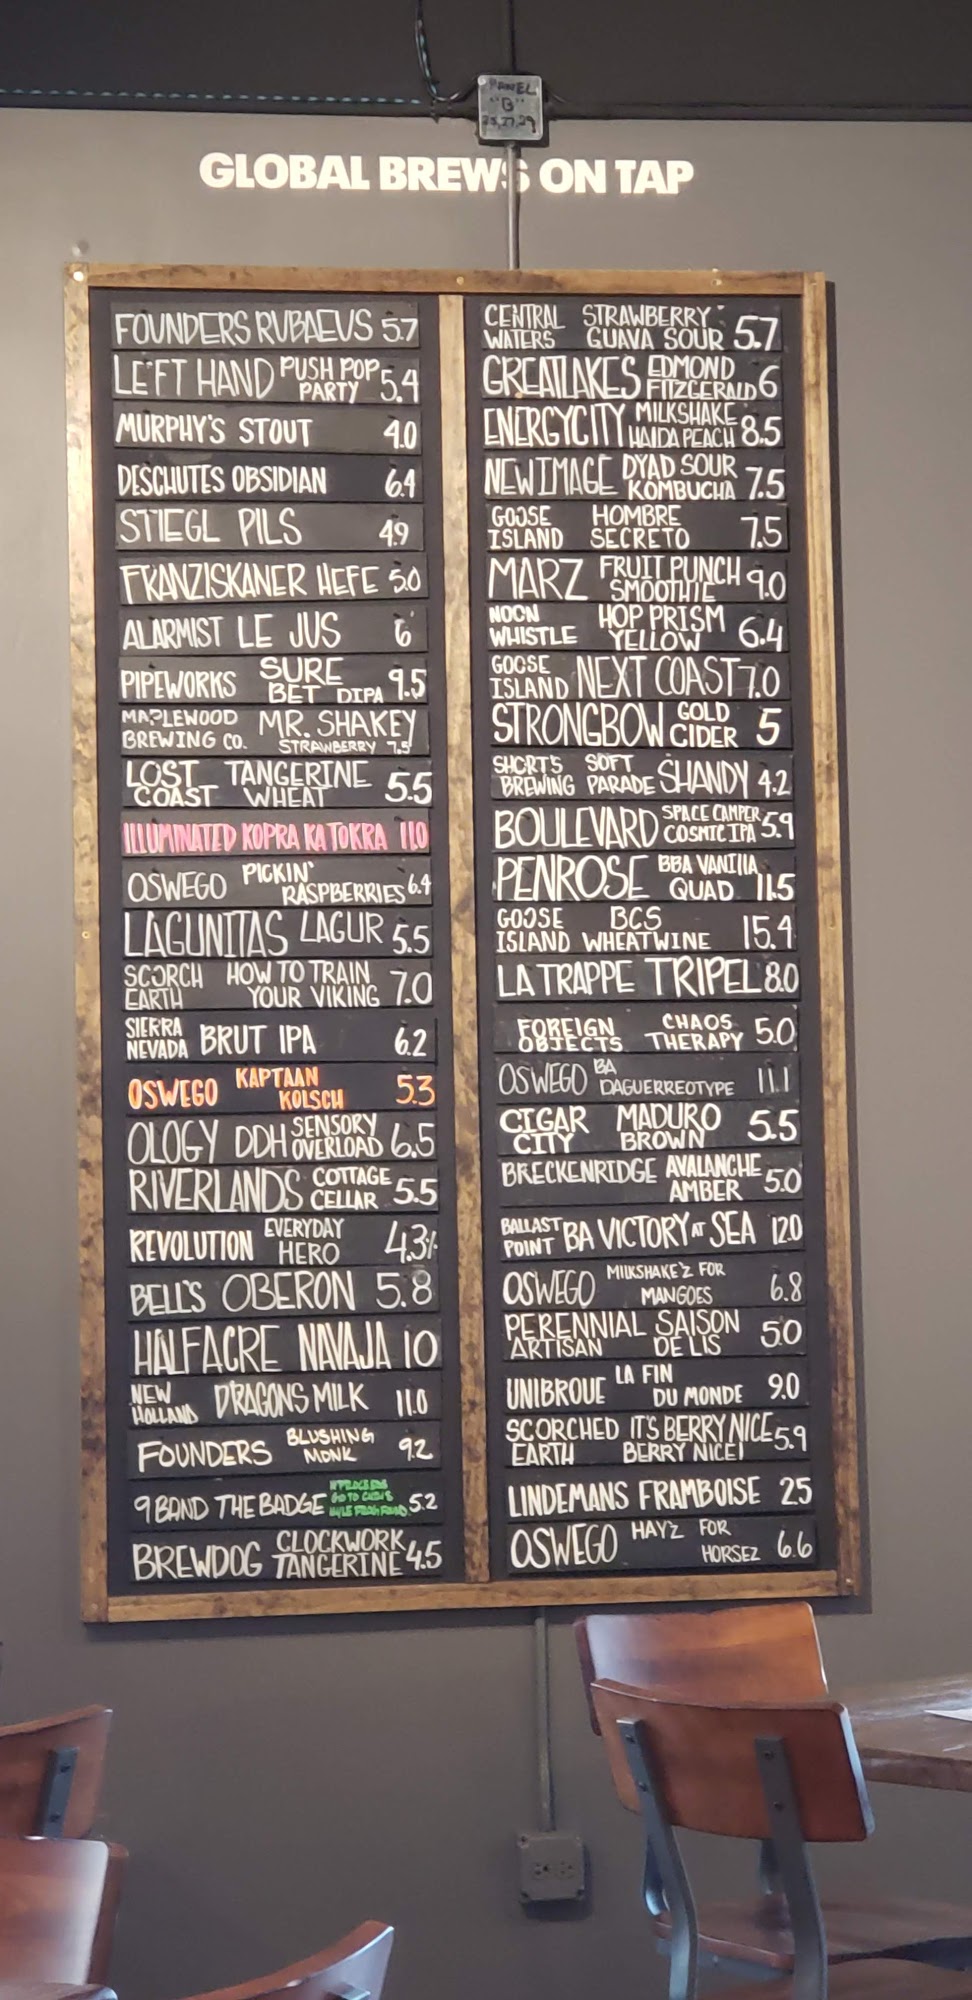 PANEL
"B"
25,27,29
GLOBAL BREWS ON TAP
FOUNDERS RUBAEUS 5.7
LEFT HAND PUSH POP PARTY 5.4
MURPHY'S STOUT 4.0
DESCHUTES OBSIDIAN 6.4
STIEGL PILS 4.9
FRANZISKANER HEFE 5.0
ALARMIST LE JUS 6
PIPEWORKS SURE BET DIPA 9.5
MAPLEWOOD BREWING CO. MR. SHAKEY STRAWBERRY 7.5
LOST COAST TANGERINE WHEAT 5.5
ILLUMINATED KOPRA KA TOKRA 11.0
OSWEGO PICKIN' RASPBERRIES 6.4
LAGUNITAS LAGUR 5.5
SCORCH EARTH HOW TO TRAIN YOUR VIKING 7.0
SIERRA NEVADA BRUT IPA 6.2
OSWEGO KAPTAAN KOLSCH 5.3
OLOGY DDH SENSORY OVERLOAD 6.5
RIVERLANDS COTTAGE CELLAR 5.5
REVOLUTION EVERYDAY HERO 4.3%
BELL'S OBERON 5.8
HALFACRE NAVAJA 10
NEW HOLLAND DRAGONS MILK 11.0
FOUNDERS BLUSHING MONK 9.2
9 BAND THE BADGE 5.2
BREWDOG CLOCKWORK TANGERINE 4.5
CENTRAL WATERS STRAWBERRY GUAVA SOUR 5.7
GREATLAKES EDMOND FITZGERALD 6
ENERGYCITY MILKSHAKE HAIDA PEACH 8.5
NEW IMAGE DYAD SOUR KOMBUCHA 7.5
GOOSE ISLAND HOMBRE SECRETO 7.5
MARZ FRUIT PUNCH SMOOTHIE 9.0
NOON WHISTLE HOP PRISM YELLOW 6.4
GOOSE ISLAND NEXT COAST 7.0
STRONGBOW GOLD CIDER 5
SHORT'S BREWING SOFT PARADE SHANDY 4.2
BOULEVARD SPACE CAMPER COSMIC IPA 5.9
PENROSE BBA VANILLA QUAD 11.5
GOOSE ISLAND BCS WHEATWINE 15.4
LA TRAPPE TRIPEL 8.0
FOREIGN OBJECTS CHAOS THERAPY 5.0
OSWEGO BA DAGUERREOTYPE 11.1
CIGAR CITY MADURO BROWN 5.5
BRECKENRIDGE AVALANCHE AMBER 5.0
BALLAST POINT BA VICTORY AT SEA 12.0
OSWEGO MILKSHAKE'Z FOR MANGOES 6.8
PERENNIAL ARTISAN SAISON DE LIS 5.0
UNIBROUE LA FIN DU MONDE 9.0
SCORCHED EARTH IT'S BERRY NICE BERRY NICE! 5.9
LINDEMANS FRAMBOISE 2.5
OSWEGO HAY'Z FOR HORSEZ 6.6